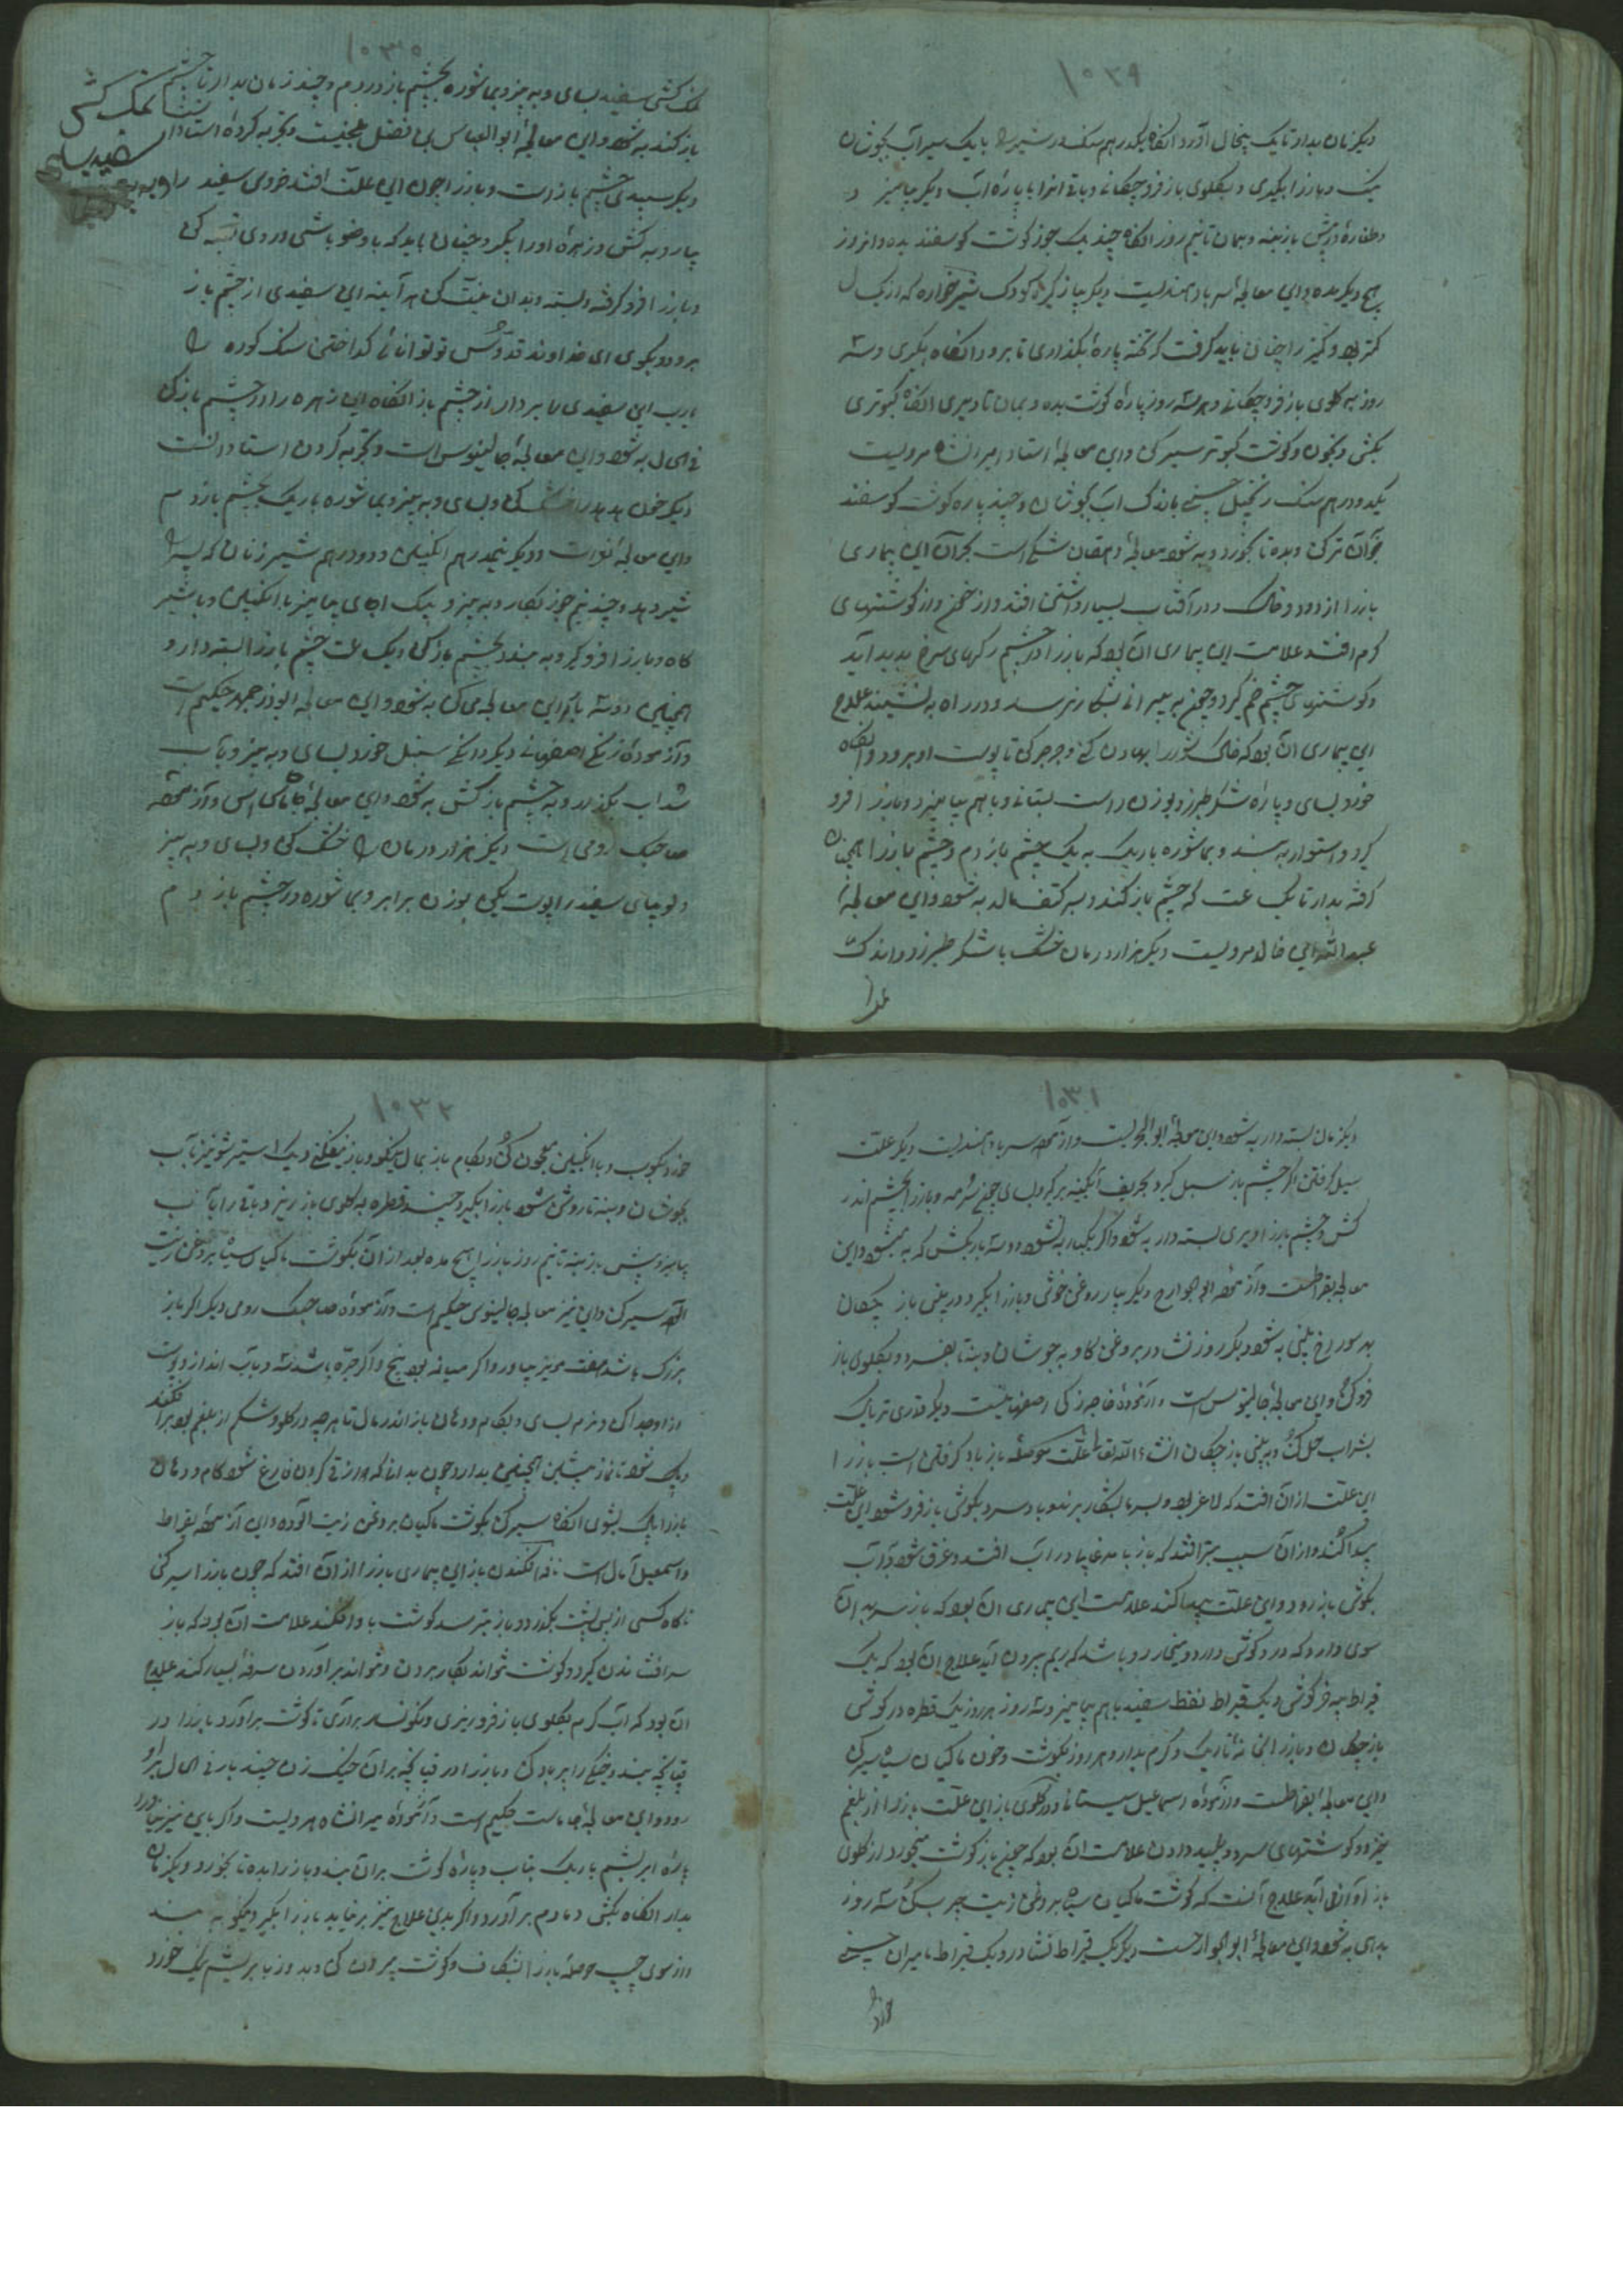 ۱۰۲۹
دیگر زمان بدار تا یک پیخال آورد آنگاه یکدرهم سنک شیر را با یک سیر آب بجوشان
نیک و باز را بگیری و بگلوی باز فرو چکانی و باقی را با پاره آب دیگر بیامیز و
در پیش باز بنه و بمان تا نیم روز آنگاه چند یک جوز گوشت گوسفند بده و آنروز
هیچ دیگر مده و این معالجهٔ سرباد هندیست دیگر بیاز کمیزه کودک شیرخواره که از یک سال
کمتر بود و کمیز را چنان باید گرفت که تخته پاره بگذاری تا برود آنگاه بگیری و سه
روز به گلوی باز فرو چکانی و هر سه روز پاره گوشت بده و بمان تا دیری آنگاه کبوتری
بکش و بخون و گوشت کبوتر سیر کن و این معالجهٔ استاد میرانشاه مرویست
یکدو درهم سنک زنجبیل چینی باندک آب بجوشان و چند پاره گوشت گوسفند
بدان تر کن و بده تا بخورد و به شود معالجهٔ دهقان شکی است بحران این بیماری
باز را از دود و خاک و در آفتاب بسیار داشتن افتد و از خشم و از گوشتهای
گرم افتد علامت این بیماری آن بود که باز را در چشم رگهای سرخ پدید آید
و گوشتهای چشم خم گیرد و چون بپرانی بشکار نرسد و در راه بنشیند علاج
این بیماری آن بود که خاک شور را بهاون کن و جرجر کن تا پوست او برود و آنگاه
خورد بسای و پاره شکر طبرزد بوزن راست بستان و با هم بیامیز و باز را فرو
گیر و استوار ببند و بماشوره باریک به یک چشم باز دم و چشم باز را همچنان
گرفته بدار تا یک ساعت که چشم باز کند و بسر کتف مالد به شود و این معالجهٔ
عبدالله ابن خالد مرویست دیگر هزار درمان خشک با شکر طبرزد و اندک
نمک
۱۰۳۰
نمک کشی سفید بسای و به بیز و بماشوره بچشم باز در دم و چند زمان بدار تا چشم
باز کند به شود و این معالجهٔ ابو العباس بن فضل بلخیست و تجربه کرده استادان
دیگر سپیدی چشم باز است و باز را چون این علت افتد خروس سفید را
بیار و به کش و زهرهٔ او را بگیر و چنان باید که با وضو باشی و روی بقبله کن
و باز را فرو گرفته و بسته و بدان نیت کن هر آینه این سفیدی از چشم باز
برود و بگوی ای خداوند قدوس تو توانائی گداختن سنک کوه را
یارب این سفیدی را بردار از چشم باز آنگاه این زهره را در چشم باز کن
فی الحال به شود و این معالجهٔ جالینوس است و تجربه کردن استادانست
دیگر خون هدهد را خشک کن و بسای و به بیز و بماشوره باریک بچشم باز دم
و این معالجهٔ بقراط است و دیگر نیمدرهم انگبین و دو درهم شیر زنان که پسر را
شیر دهد و چند نیم جوز بکار و به بیز و نیک بسای بیامیز با انگبین و با شیر
گاه و باز را فرو گیر و به بند و بچشم باز کن و یک ساعت چشم باز را بسته دار و
همچنین دو سه بار این معالجه می کن به شود و این معالجه ابوذرجمهر حکیم است
و آزموده زنگی اصفهانی دیگر دانکی سنبل خورد بسای و به بیز و بآب
سداب بگذار و به چشم باز کش به شود و این معالجهٔ جاماس است و آزموده
صاحبک رومی است دیگر هزار درمان را خشک کن و بسای و به بیز
و لوبیای سفید را پوست بکن بوزن برابر و بماشوره در چشم باز دم
نمک کشی
سفید بسای
و به بیز
۱۰۳۱
دیگر زمان بسته دار به شود و این معالجهٔ ابو البحریست و آزموده سرباد هندیست دیگر علت
سبل گرفتن اگر چشم باز سبل گیرد بحریف آبگینه برگیر و بسای چون سرمه و باز را بچشم اندر
کش و چشم باز را دیری بسته دار به شود و اگر یکبار به نشود دو سه بار بکش که به میشود و این
معالجه بقراطست و آزموده ابو الجوارح دیگر بیار روغن خوش و باز را بگیر و در بینی باز بچکان
هر دو سوراخ بینی به شود دیگر روز نشادر بروغن گاو به جوشان و بنه تا بفسرد و بگلوی باز
فرو کن و این معالجهٔ جالینوس است و آزموده خواجه زنکی اصفهانیست دیگر قدری تریاک
بشراب حل کن و به بینی باز چکان انشاءالله تعالی علت حوصلهٔ باز باد گرفتن است باز را
این علت از آن افتد که لاغر بود و بسرما بشکار برند و باد سرد بگوش باز فرو شود این علت
پیدا کند و از آن سبب نیز افتد که باز با مرغابی در آب افتد و غرق شود و آب
بگوش باز رود و این علت پیدا کند علامت این بیماری آن بود که باز سر بدان
سوی دارد که درد گوش دارد و میخارد و باشد که ریم بیرون آید علاج آن بود که یک
قیراط پیه خرگوش و یک قیراط نفط سفید باهم بیامیز و سه روز هر روز یک قطره در گوش
باز چکان و باز را بخانه تاریک و گرم بدار و هر روز بگوشت و خون ماکیان سیاه سیر کن
و این معالجهٔ بقراطست و آزموده اسماعیل سیستانی در گلوی باز این علت باز را از بلغم
خیزد و گوشتهای سرد و پلید دادن علامت آن بود که چون باز گوشت میخورد از گلوی
باز آواز آید علاج آنست که گوشت ماکیان سیاه بروغن زیت چرب کن سه روز
بدهی به شود و این معالجهٔ ابو الجوارحست دیگر یک قیراط نشادر و یک قیراط مامیران چینی
خورد
۱۰۳۲
خورد بکوب و با انگبین معجون کن و بکام باز بمال نیکو و باز بیفکنی و یک استیر شونیز بآب
بجوشان و بنه تا روشن شود باز را بگیر و چند قطره به گلوی باز ریز و باقی را بآب
بیامیز و پیش باز بنه تا نیم روز باز را هیچ مده بعد از آن بگوشت ماکیان سیاه بروغن زیت
آلوده سیر کن و این نیز معالجه جالینوس حکیم است و آزموده صاحبک رومی دیگر اگر باز
بزرگ باشد هفت مویز بیاور و اگر میانه بود پنج و اگر جره باشد سه و بآب انداز و پوست
از او جدا کن و نرم بسای و بکام و دهان باز اندر مال تا هرچه در گلو و شکم از بلغم بود بر افکند
و پاک شود تا نماز پیشین همچنین بدار و چون بدانی که از قی کردن فارغ شود کام و دهان
باز را پاک بشوی آنگاه سیر کن بگوشت ماکیان بروغن زیت آلوده و این آزموده بقراط
و اسمعیل است افکندن باز این بیماری باز را از آن افتد که چون باز را سیر کنی
ناگاه کسی از پس پشت بگذرد و باز بترسد گوشت باد افکند علامت آن بود که باز
سر افشاندن گیرد و گوشت نتواند بکار بردن و نتواند برآوردن سرفهٔ بسیار کند علاج
آن بود که آب گرم بگلوی باز فرو ریزی و نگونسار برآری تا گوشت برآورد باز را در
قباچه بند و خیکی را پر باد کن و باز را در قباچه بر آن خیک زن چند بار فی الحال بر او
رود و این معالجهٔ جاماست حکیم است و آزموده میرانشاه مرویست و اگر باین نیز نیاید
پاره ابریشم باریک بتاب و پاره گوشت بر آن بند و باز را بده تا بخورد و یکزمان
بدار آنگاه بکش دمادم برآورد و اگر بدین علاج نیز بر نیاید باز را بگیر و نیکو به بند
و از سوی چپ حوصله باز را بشکاف و گوشت بیرون کن و بدوز بابریشم نیک خورد